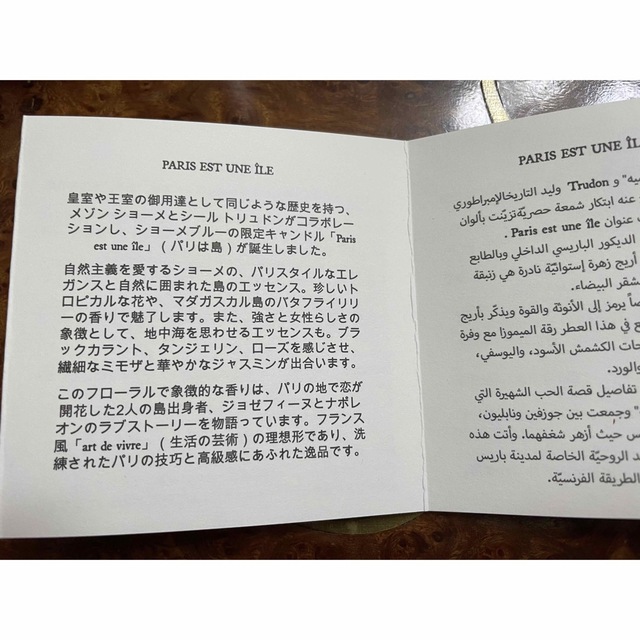 PARIS EST UNE ÎLE
皇室や王室の御用達として同じような歴史を持つ、
メゾン ショーメとシール トリュドンがコラボレー
ションし、ショーメブルーの限定キャンドル「Paris
est une île」（パリは島）が誕生しました。
自然主義を愛するショーメの、パリスタイルなエレ
ガンスと自然に囲まれた島のエッセンス。珍しいト
ロピカルな花や、マダガスカル島のバタフライリリ
ーの香りで魅了します。また、強さと女性らしさの
象徴として、地中海を思わせるエッセンスも。ブラ
ックカラント、タンジェリン、ローズを感じさせ、
繊細なミモザと華やかなジャスミンが出合います。
このフローラルで象徴的な香りは、パリの地で恋が
開花した2人の島出身者、ジョゼフィーヌとナポレ
オンのラブストーリーを物語っています。フランス
風「art de vivre」（生活の芸術）の理想形であり、洗
練されたパリの技巧と高級感にあふれた逸品です。
PARIS EST UNE ÎL
ميه" و Trudon" وليد التاريخالإمبراطوري
عنه ابتكار شمعة حصريّةتزيّنت بألوان
عنوان Paris est une île .
الديكور الباريسي الداخلي وبالطابع
أريج زهرة إستوائيّة نادرة هي زنبقة
شقر البيضاء.
صاً يرمز إلى الأنوثة والقوة ويذكّر بأريج
ع في هذا العطر رقة الميموزا مع وفرة
حات الكشمش الأسود، واليوسفي،
والورد.
تفاصيل قصة الحب الشهيرة التي
" وجمعت بين جوزفين ونابليون،
س حيث أزهر شغفهما. وأتت هذه
د الروحيّة الخاصة لمدينة باريس
الطريقة الفرنسيّة.